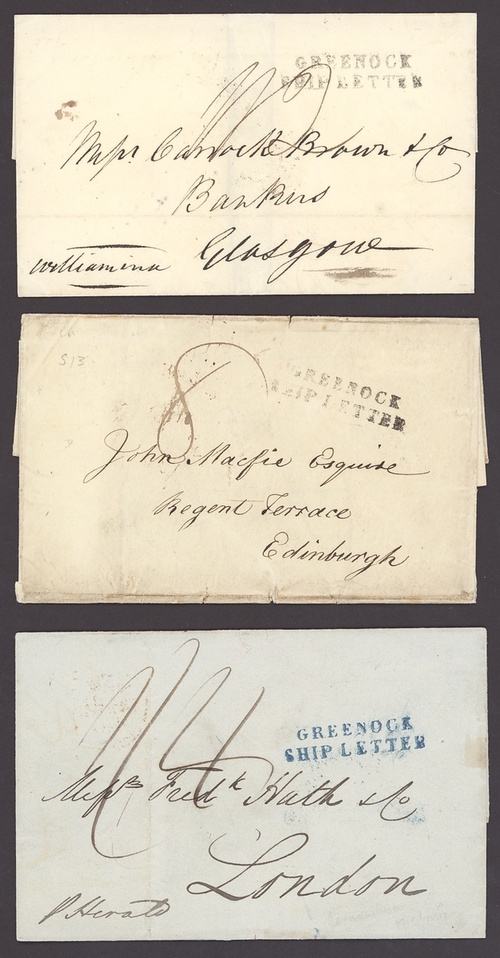 GREENOCK
SHIP LETTER
Messrs Carrock Brown & Co
Bankers
Glasgow
Williamina
S13
8
GREENOCK
SHIP LETTER
John Macfie Esquire
Regent Terrace
Edinburgh
GREENOCK
SHIP LETTER
Messrs Fredk Huth & Co
London
p Herald